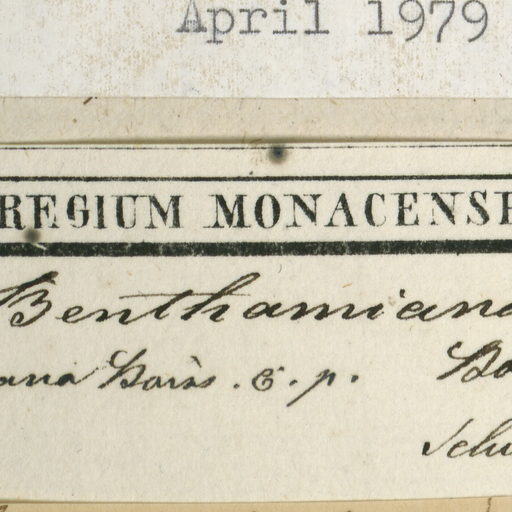 April 1979
REGIUM MONACENSE
Benthamiana
ana Boiss. E. p. Bo
Schu